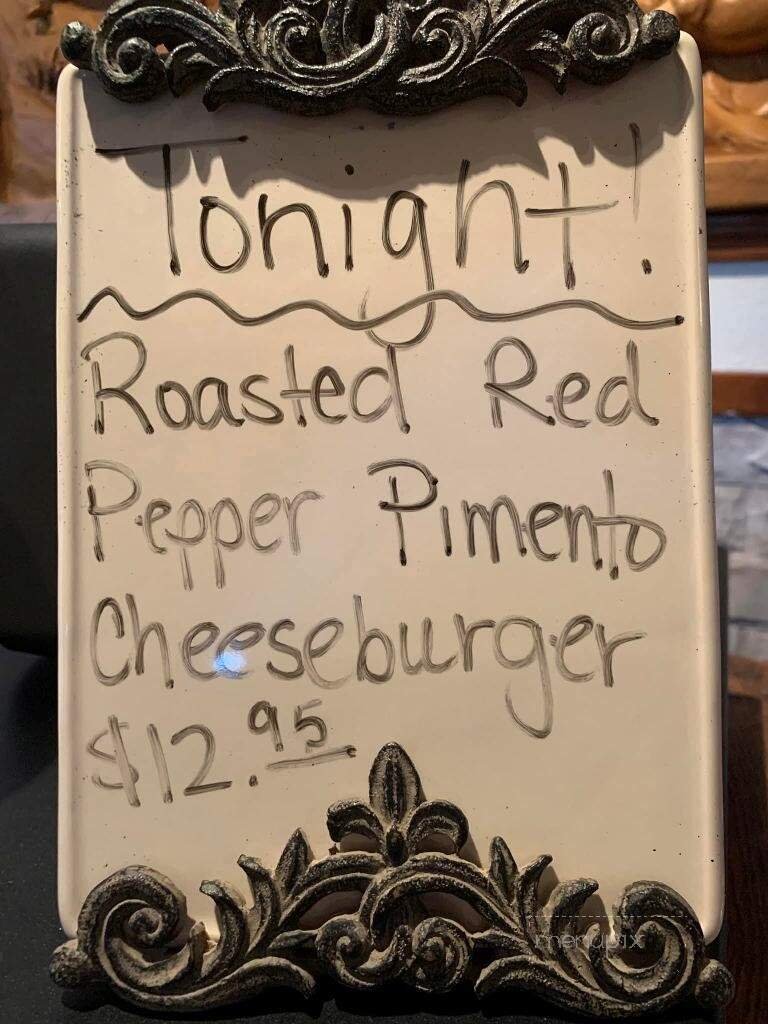 Tonight!
Roasted Red
Pepper Pimento
Cheeseburger
$12.95
menupix